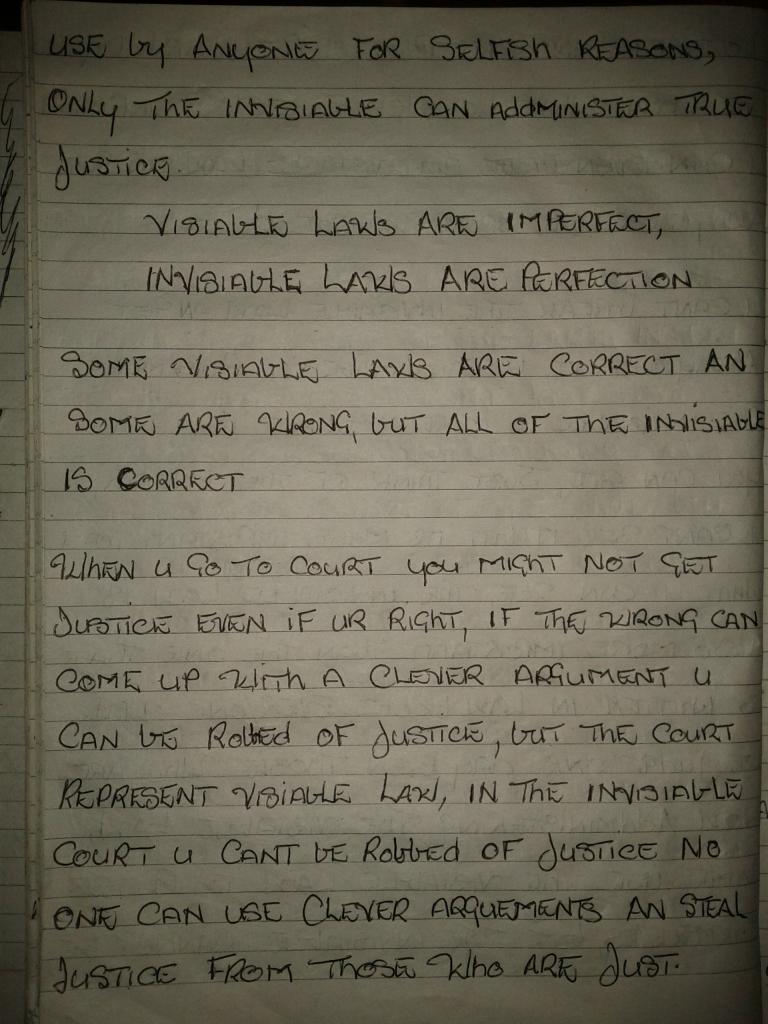 USE by ANyONE FOR SELFISh REASONS,
ONLy ThE INVISIAbLE CAN AddMINISTER TRUE
JUSTICE.
VISIAbLE LAWS ARE IMPERFECT,
INVISIAbLE LAWS ARE PERFECTION
SOME VISIAbLE LAWS ARE CORRECT AN
SOME ARE WRONG, bUT ALL OF ThE INVISIAbLE
IS CORRECT
WhEN U GO TO COURT yOU MIGhT NOT GET
JUSTICE EVEN iF UR RIGhT, IF ThE WRONG CAN
COME UP WITh A CLEVER ARGUMENT U
CAN bE Robbed OF JUSTICE, bUT ThE COURT
REPRESENT VISIAbLE LAW, IN ThE INVISIAbLE
COURT U CANT bE Robbed OF JUSTICE NO
ONE CAN USE CLEVER ARQUEMENTS AN STEAL
JUSTICE FROM ThOSE Who ARE JUST.